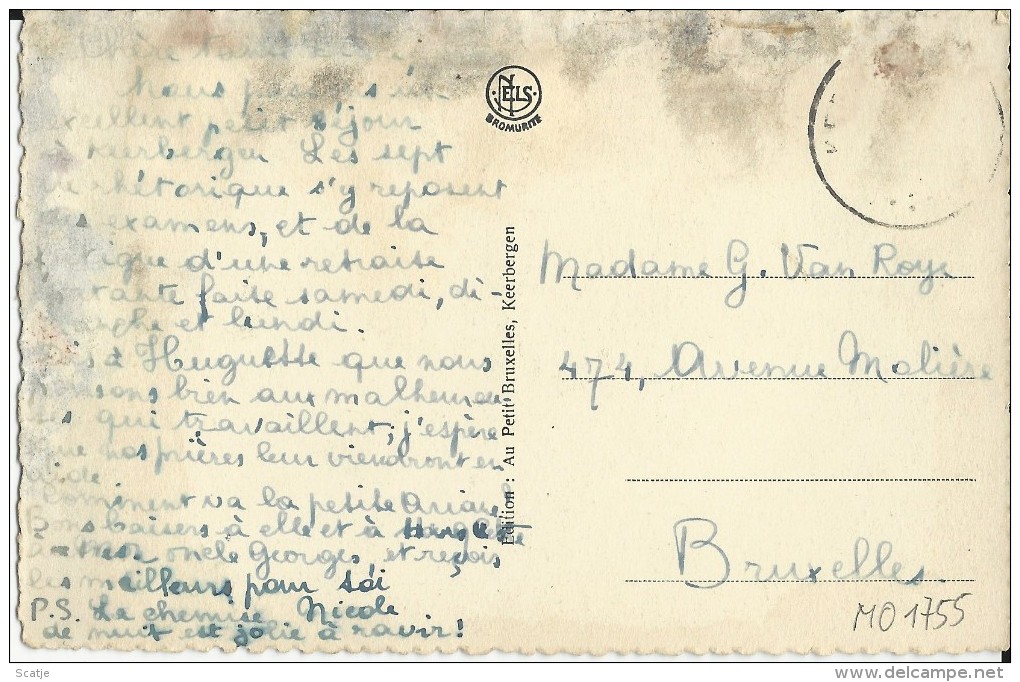 Chère
Nous passons un
excellent petit séjour
à Keerbergen Les sept
de rhétorique s'y reposent
des examens, et de la
fatigue d'une retraite
faite samedi, di-
manche et lundi.
Dis à Huguette que nous
pensons bien aux malheureu-
ses qui travaillent; j'espère
que nos prières leur viendront en
aide
Comment va la petite Ariane
Bons baisers à elle et à Huguette
à oncle Georges et reçois
les meilleurs pour toi
Nicole
P.S. La chemise
de nuit est jolie à ravir!
NELS
BROMURITE
Edition : Au Petit Bruxelles, Keerbergen
Madame G. Van Roye
474, Avenue Molière
Bruxelles
MO 1755
Scatje
delcampe.net